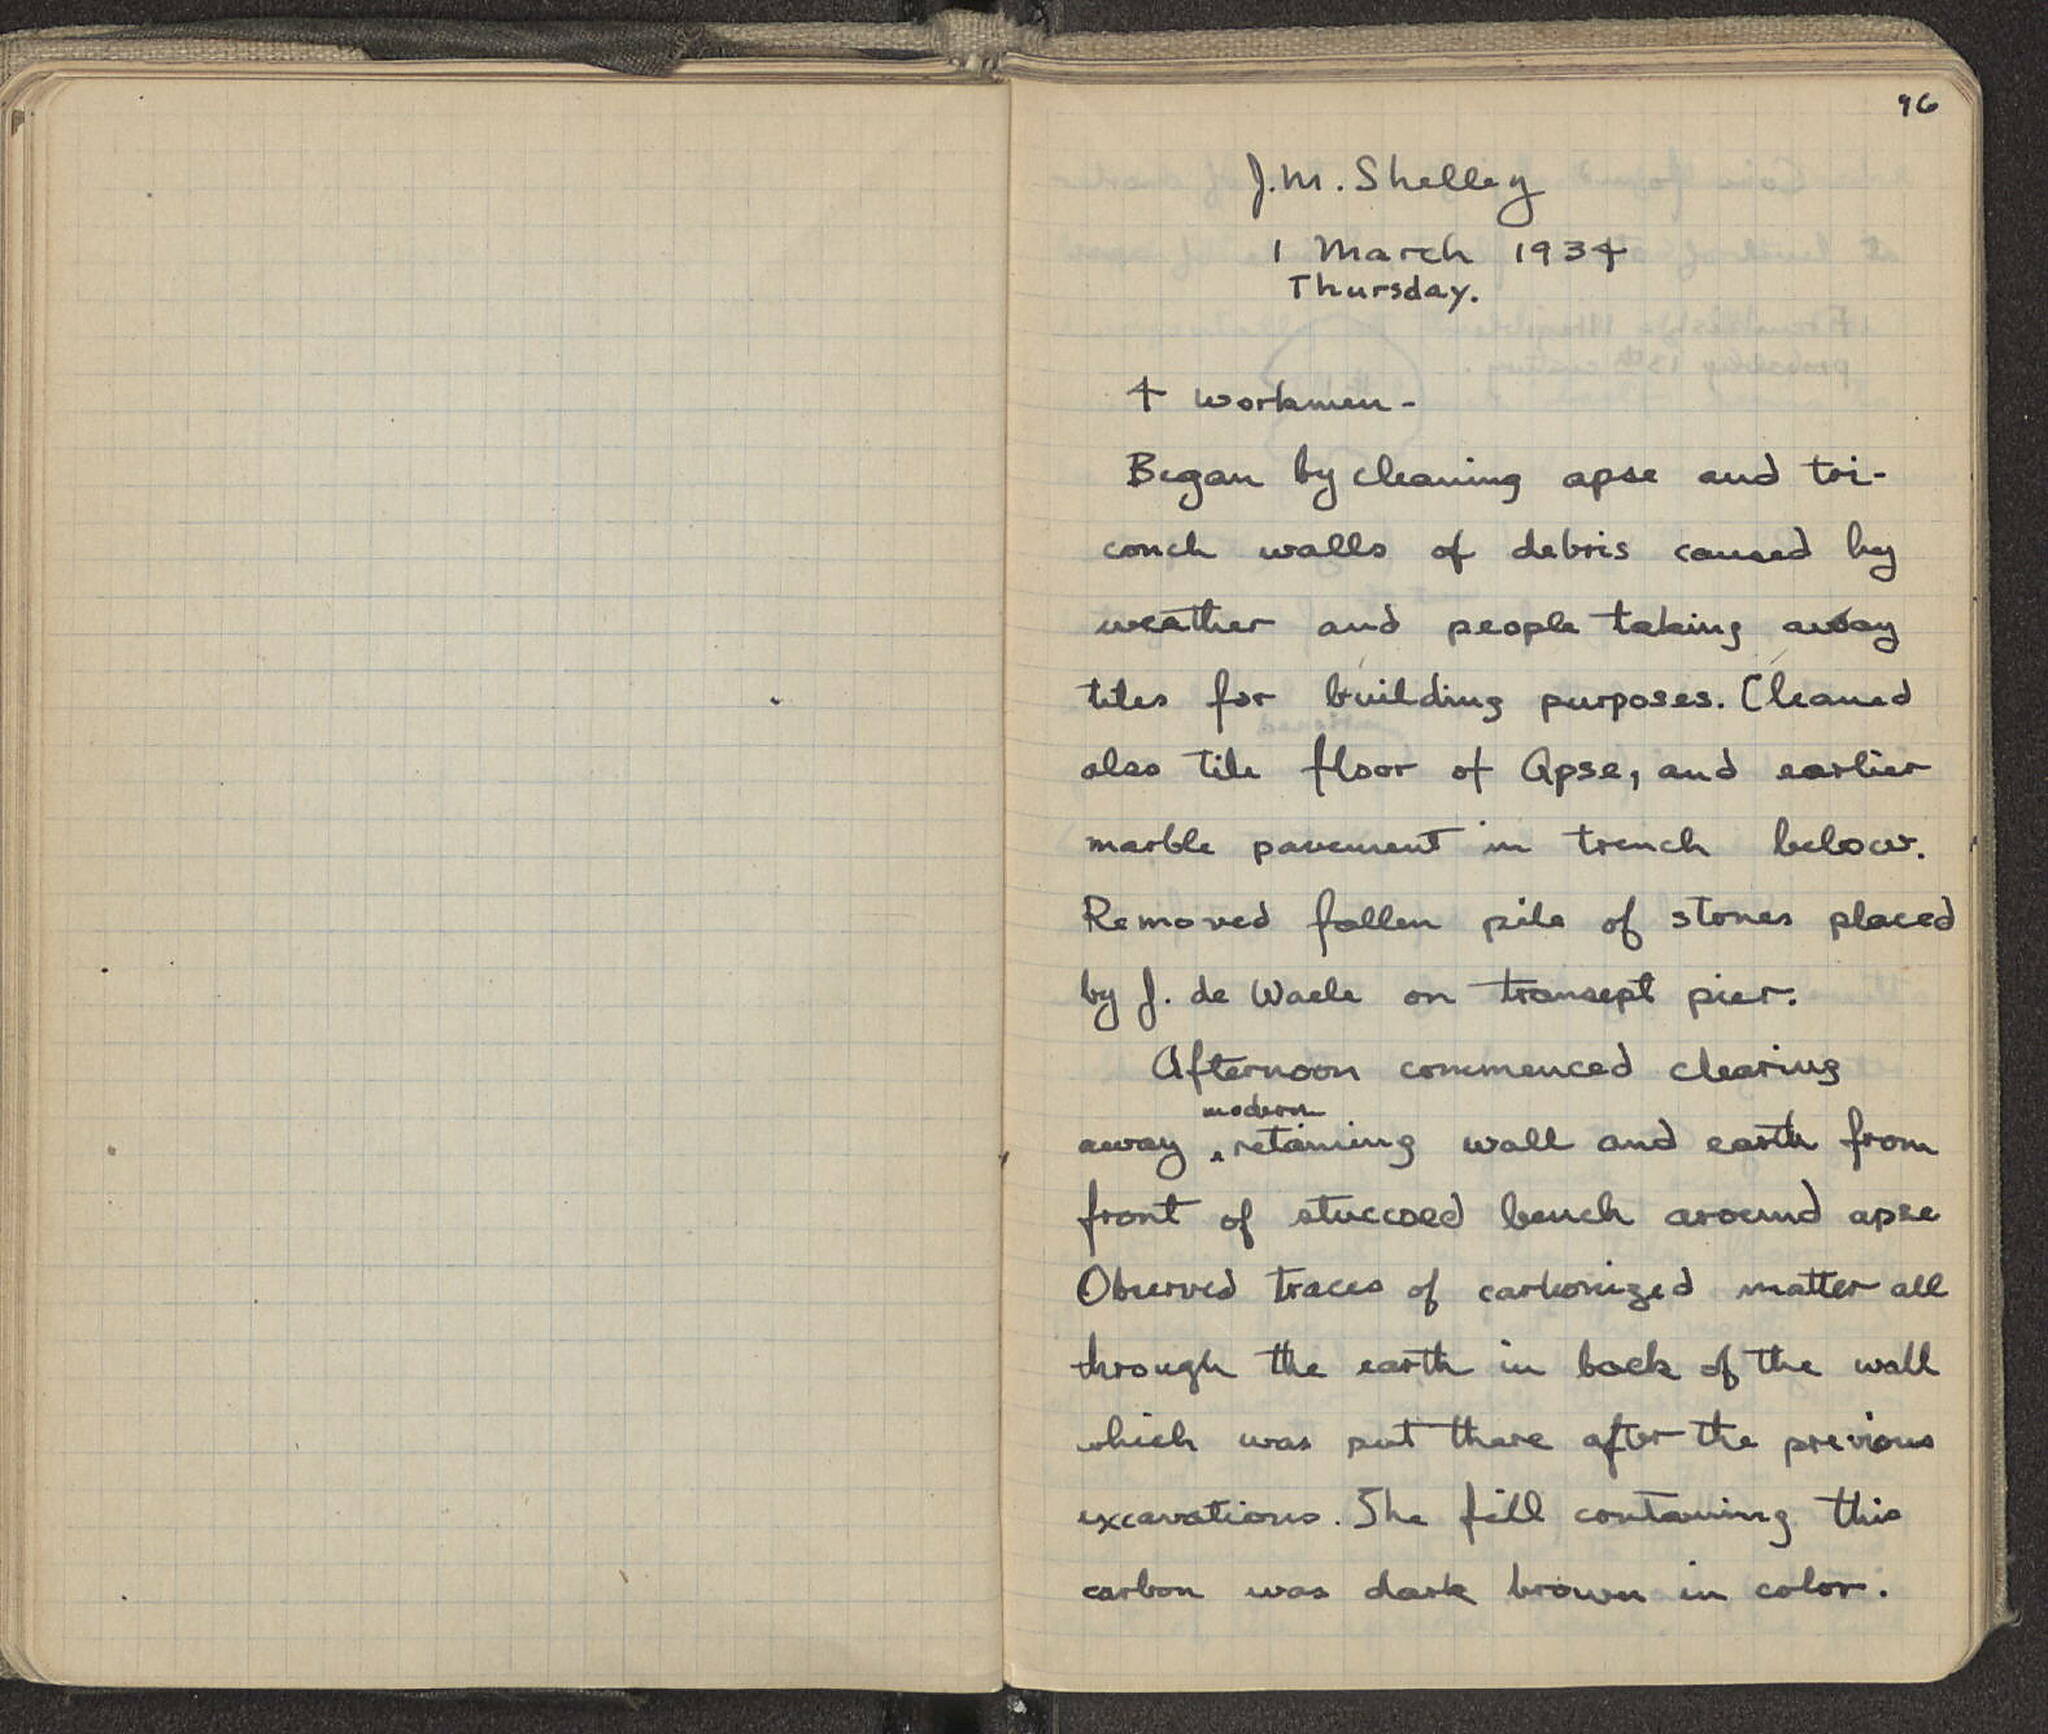 96
J.M. Shelley
1 March 1934
Thursday.
4 workmen -
Began by cleaning apse and tri-
conch walls of debris caused by
weather and people taking away
tiles for building purposes. Cleaned
also tile floor of Apse, and earlier
marble pavement in trench below.
Removed fallen pile of stones placed
by J. de Waele on transept pier.
Afternoon commenced clearing
modern
away ‸ retaining wall and earth from
front of stuccoed bench around apse
Observed traces of carbonized matter all
through the earth in back of the wall
which was put there after the previous
excavations. The fill containing this
carbon was dark brown in color.